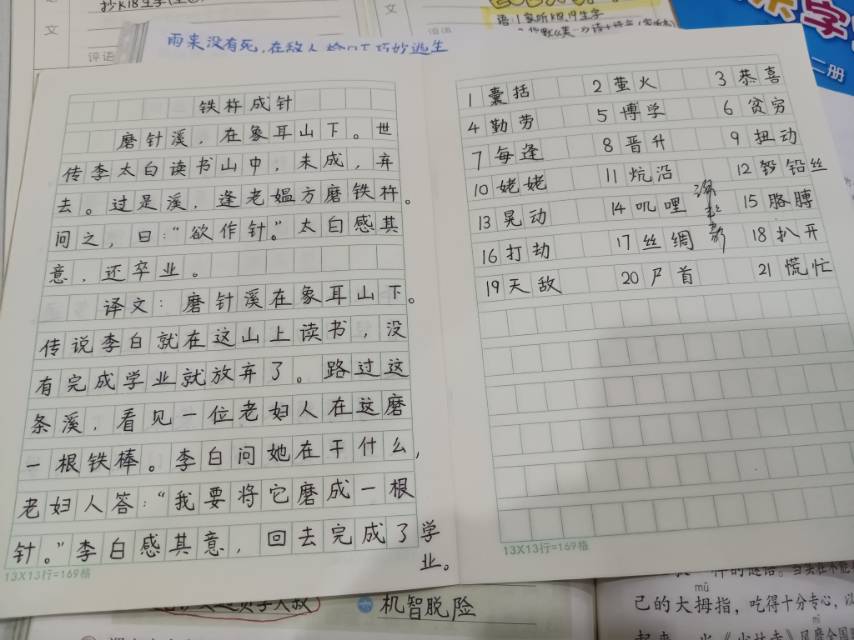 文
评语
文
雨来没有死,在敌人
巧妙逃生
二册
铁杵成针
磨针溪，在象耳山下。世
传李太白读书山中，未成，弃
去。过是溪，逢老媪方磨铁杵。
问之，曰：“欲作针。”太白感其
意，还卒业。
译文：磨针溪在象耳山下。
传说李白就在这山上读书，没
有完成学业就放弃了。路过这
条溪，看见一位老妇人在这磨
一根铁棒。李白问她在干什么，
老妇人答：“我要将它磨成一根
针。”李白感其意，回去完成了学
业。
13X13行=169格
1 囊括 2 萤火 3 恭喜
4 勤劳 5 博学 6 贫穷
7 每逢 8 晋升 9 扭动
10 姥姥 11 炕沿 12 铅丝
13 晃动 14 叽哩 15 胳膊
16 打劫 17 丝绸 18 扒开
19 天敌 20 尸首 21 慌忙
13X13行=169格
机智脱险
mǔ
己的大拇指，吃得十分专心，